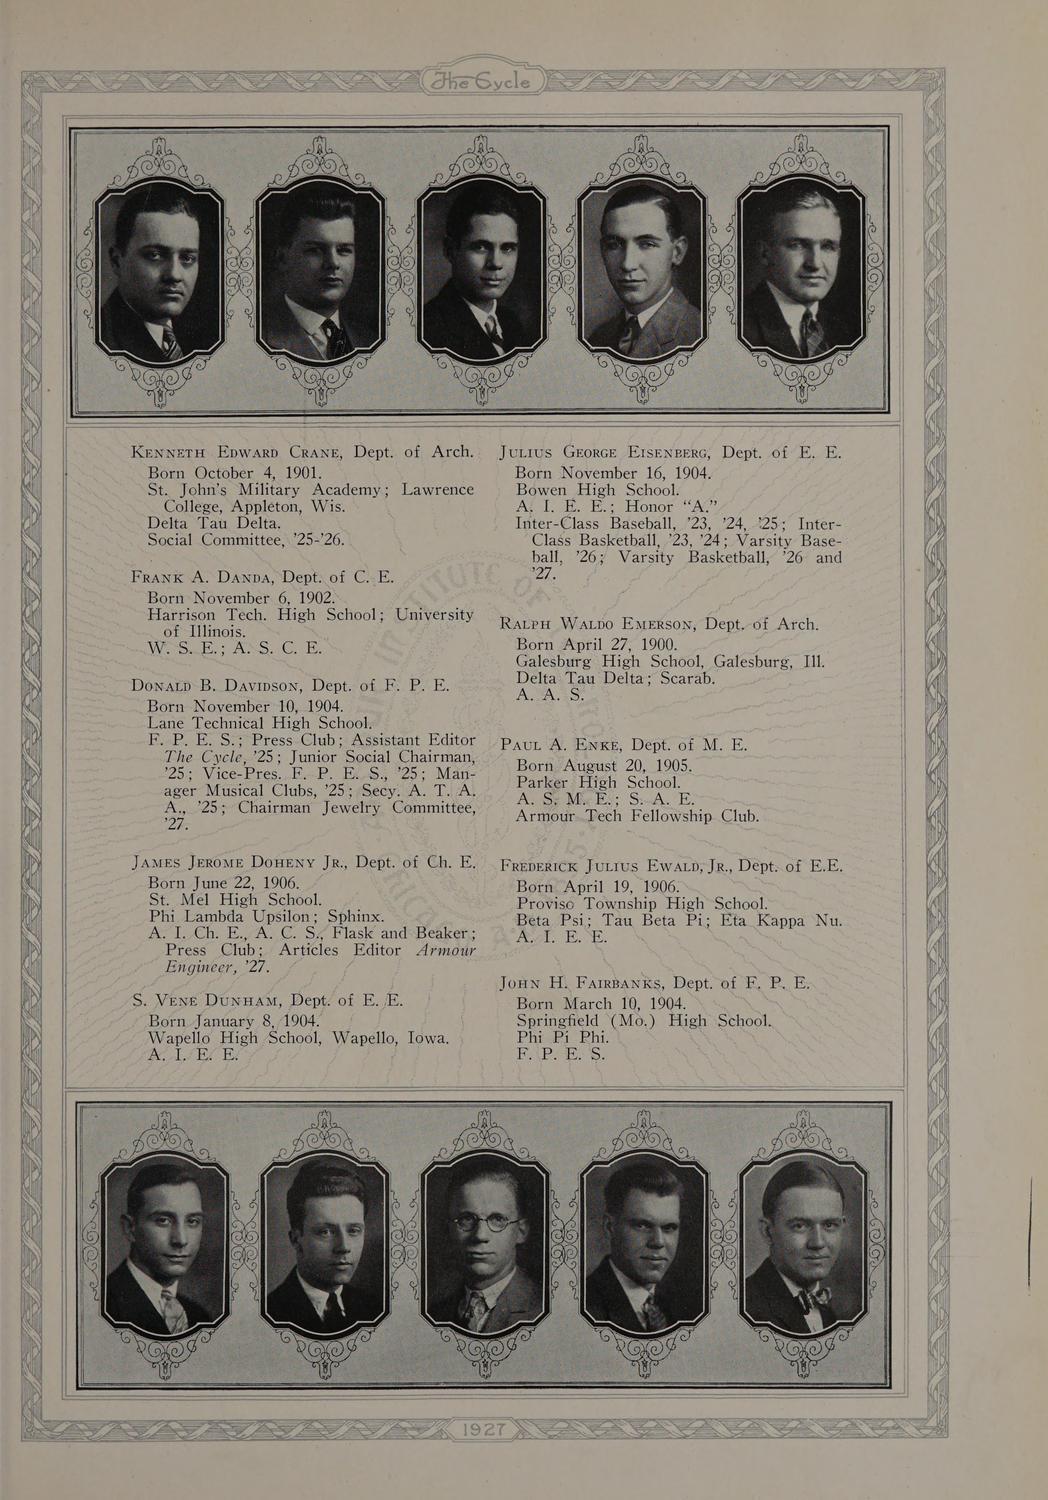 The Cycle
KENNETH EDWARD CRANE, Dept. of Arch.
Born October 4, 1901.
St. John's Military Academy; Lawrence
College, Appleton, Wis.
Delta Tau Delta.
Social Committee, '25-'26.
FRANK A. DANDA, Dept. of C. E.
Born November 6, 1902.
Harrison Tech. High School; University
of Illinois.
W. S. E.; A. S. C. E.
DONALD B. DAVIDSON, Dept. of F. P. E.
Born November 10, 1904.
Lane Technical High School.
F. P. E. S.; Press Club; Assistant Editor
The Cycle, '25; Junior Social Chairman,
'25; Vice-Pres. F. P. E. S., '25; Man-
ager Musical Clubs, '25; Secy. A. T. A.
A., '25; Chairman Jewelry Committee,
'27.
JAMES JEROME DOHENY JR., Dept. of Ch. E.
Born June 22, 1906.
St. Mel High School.
Phi Lambda Upsilon; Sphinx.
A. I. Ch. E., A. C. S., Flask and Beaker;
Press Club; Articles Editor Armour
Engineer, '27.
S. VENE DUNHAM, Dept. of E. E.
Born January 8, 1904.
Wapello High School, Wapello, Iowa.
A. I. E. E.
JULIUS GEORGE EISENBERG, Dept. of E. E.
Born November 16, 1904.
Bowen High School.
A. I. E. E.; Honor “A.”
Inter-Class Baseball, '23, '24, '25; Inter-
Class Basketball, '23, '24; Varsity Base-
ball, '26; Varsity Basketball, '26 and
'27.
RALPH WALDO EMERSON, Dept. of Arch.
Born April 27, 1900.
Galesburg High School, Galesburg, Ill.
Delta Tau Delta; Scarab.
A. A. S.
PAUL A. ENKE, Dept. of M. E.
Born August 20, 1905.
Parker High School.
A. S. M. E.; S. A. E.
Armour Tech Fellowship Club.
FREDERICK JULIUS EWALD, JR., Dept. of E.E.
Born April 19, 1906.
Proviso Township High School.
Beta Psi; Tau Beta Pi; Eta Kappa Nu.
A. I. E. E.
JOHN H. FAIRBANKS, Dept. of F. P. E.
Born March 10, 1904.
Springfield (Mo.) High School.
Phi Pi Phi.
F. P. E. S.
1927